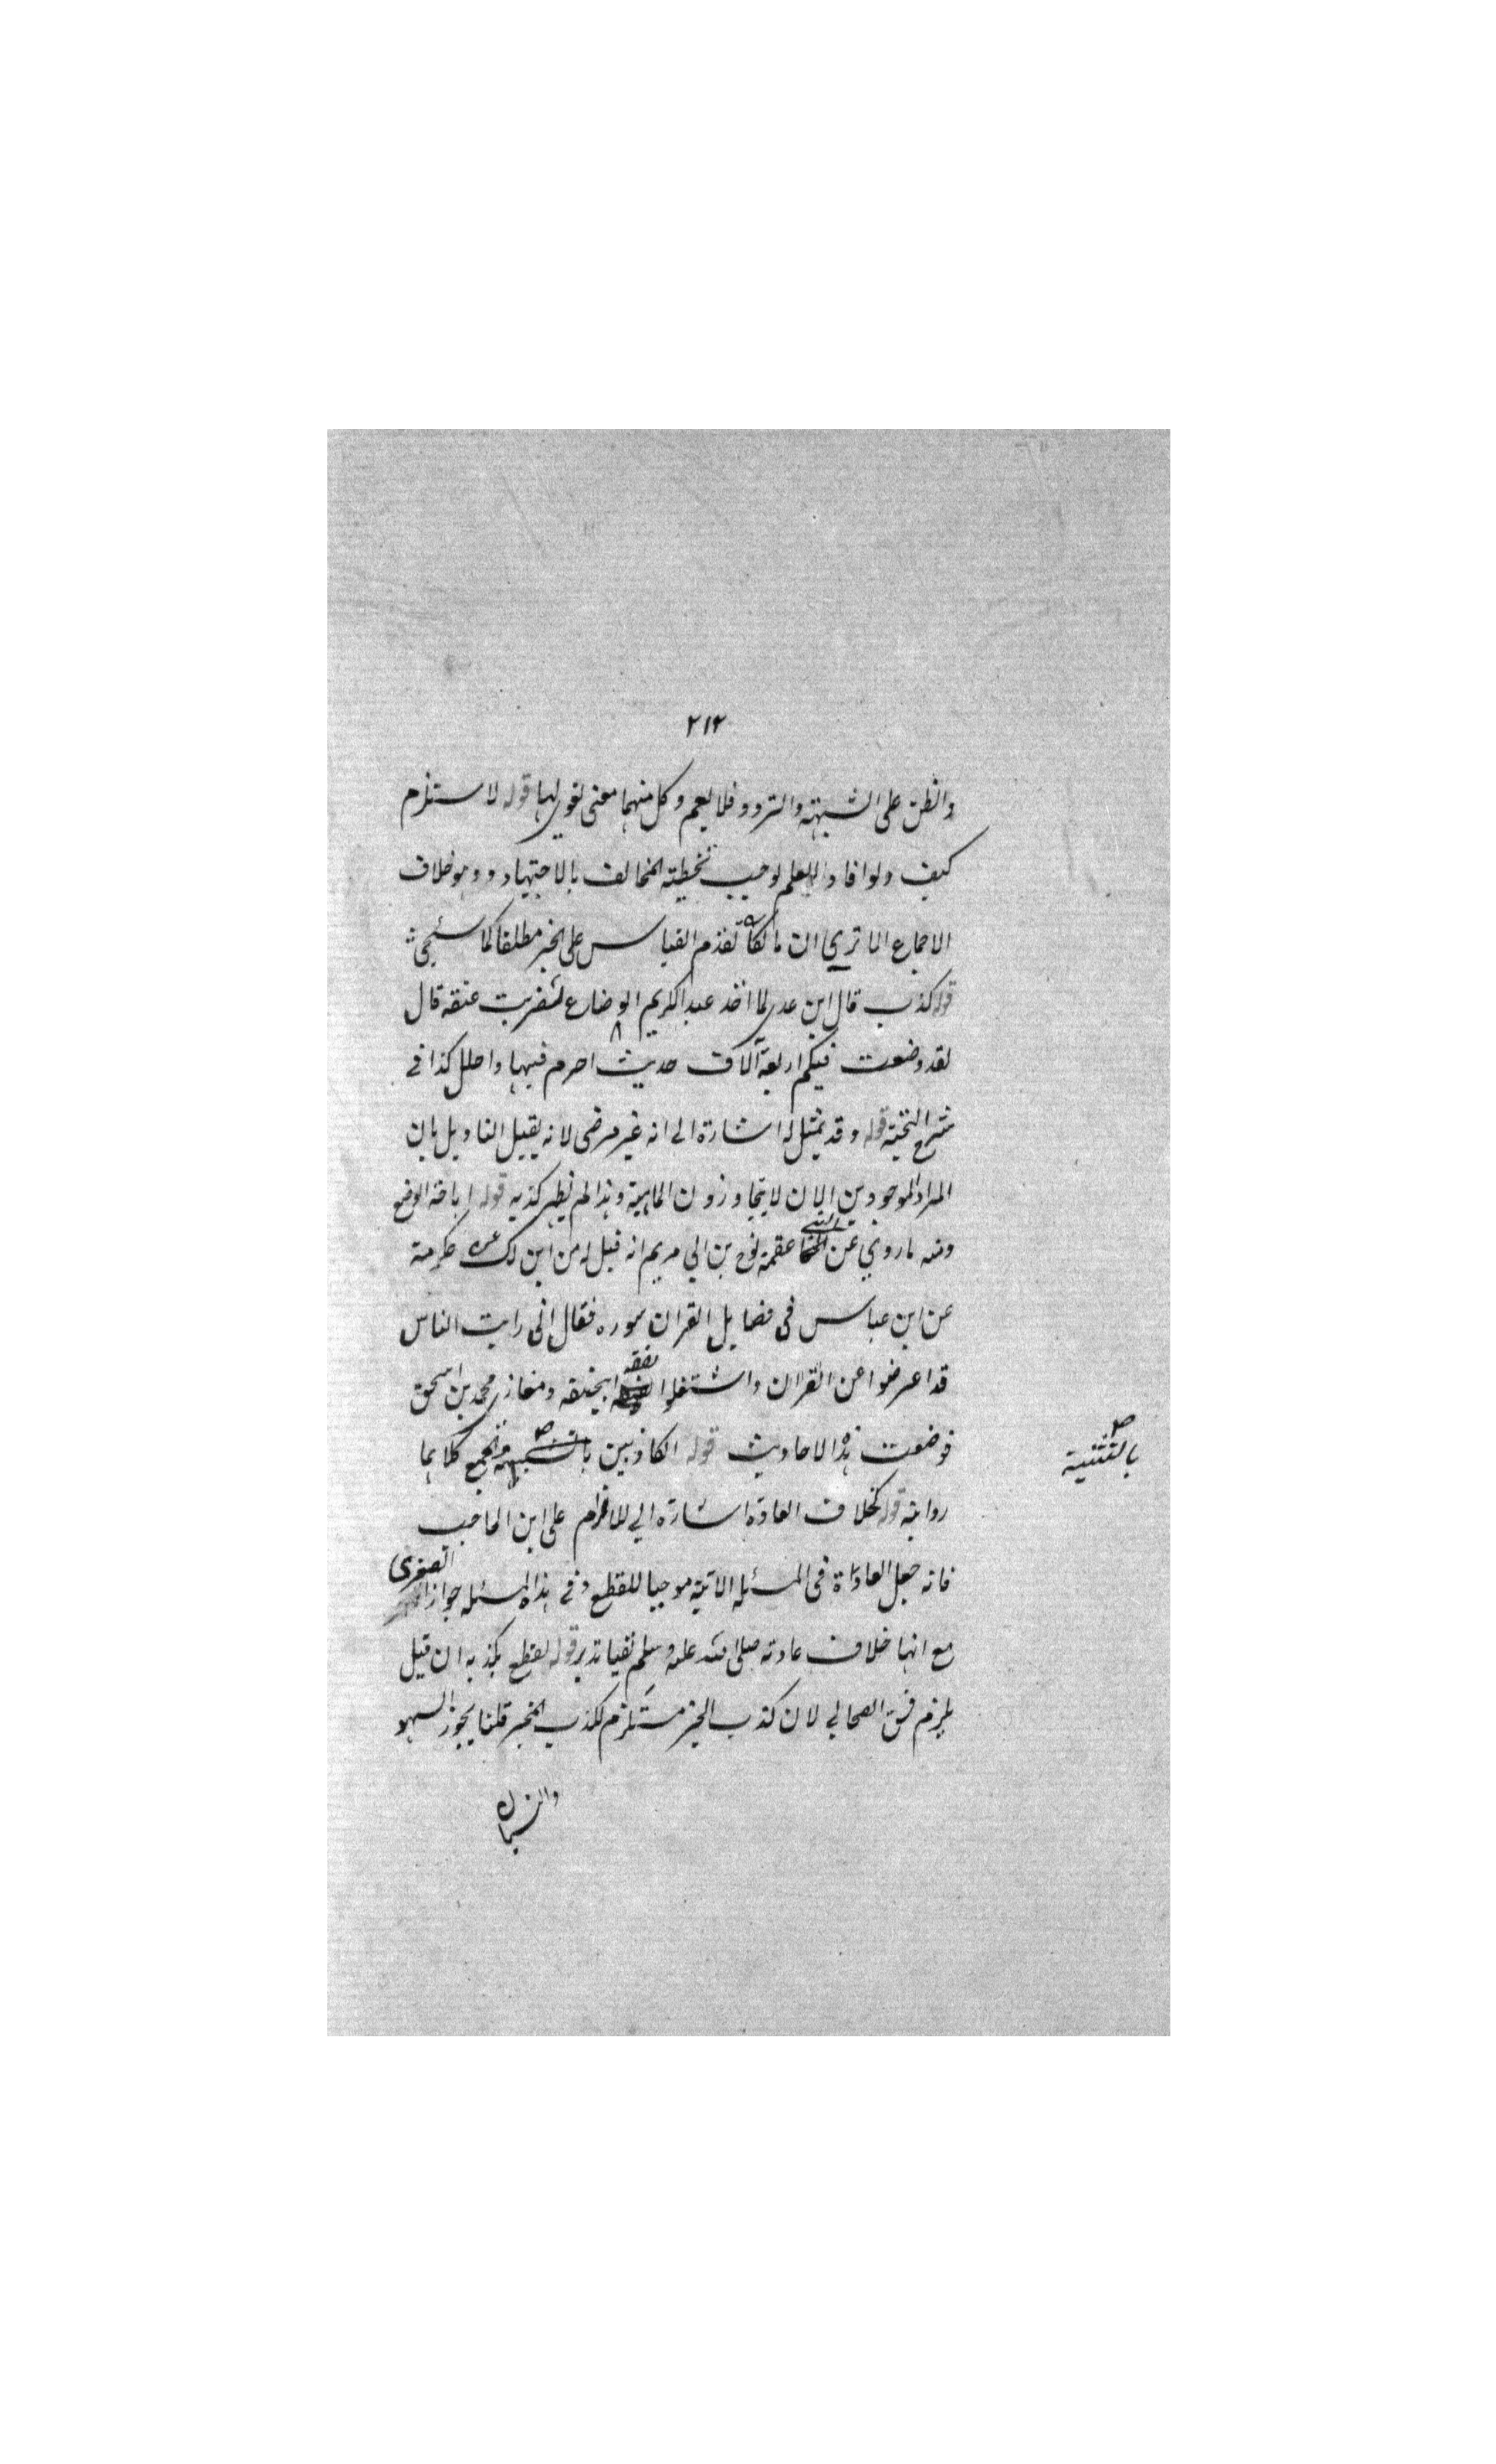 ٢١٢
والظن على الشبهة والتردد فلا يعم وكل منهما معنى لغوي لها قوله لا ستلزم
كيف ولو افاد العلم لوجب تخطيته المخالف بالاجتهاد وهو خلاف
الاجماع الا تري ان مالكا تقدم القياس على الخبر مطلقا كما سيجئ
قوله كذب قال ابن عدي لما اخذ عبد الكريم الوضاع لتضرب عنقه قال
لقد وضعت فيكم اربعة آلاف حديث احرم فيها واحلل كذا في
شرح النخبة قوله وقد تمثل له اشارة الى انه غير مرضى لانه يقبل التاويل بان
المراد الموجودين الان لا يتجاوزون الماية وهذا لم يظهر كذبه قوله اباحة الوضع
ومنه ما روي عن ابي عقمة نوح بن ابي مريم انه قيل له من اين لك عن عكرمة
عن ابن عباس في فضايل القران سوره فقال اني رايت الناس
قد اعرضوا عن القران واشتغلوا بفقه ابيحنيفه ومغازي محمد بن اسحق
فوضعت هذه الاحاديث قوله الكاذبين بالتشبيه والجمع كلاهما
بالتثنية صح
رواية قوله بخلاف العادة اشارة الي على ابن الحاجب
فانه جعل العادة في المسئلة الاتية موجبا للقطع وفي هذه المسئله جواز الصغرى
مع انها خلاف عادته صلى الله عليه وسلم نفيا تدبر قوله لقطع بكذبه ان قيل
يلزم فسق الصحابي لان كذب الخبر مستلزم لكذب المخبر قلنا يجوز السهو
والنسيان